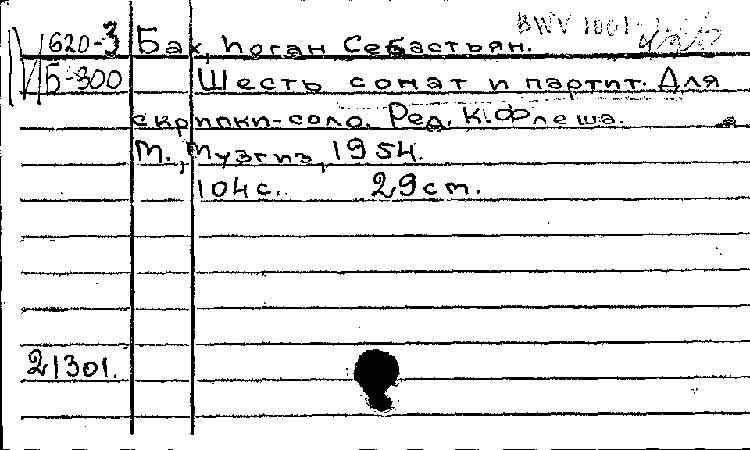 620-3 Бах, Иоган Себастьян. BWV 1001
Б-300 Шесть сонат и партит. Для
скрипки-соло. Ред. К. Флеша.
М., Музгиз, 1954.
104 с. 29 см.
21301.